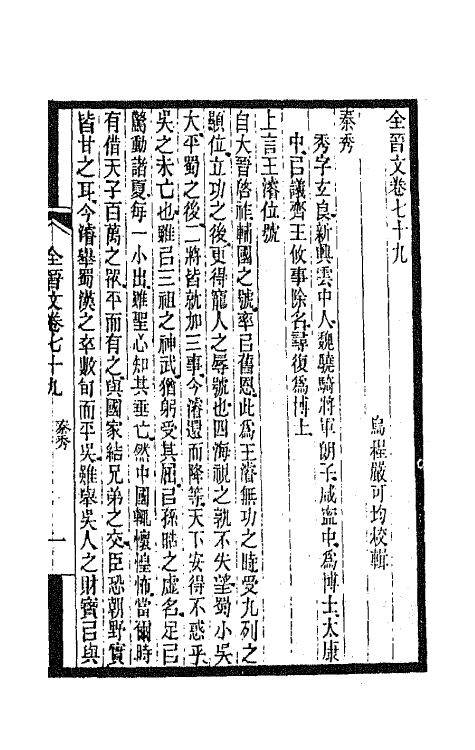 全晉文卷七十九
烏程嚴可均校輯
秦秀
秀字玄良新興雲中人魏驍騎將軍朗子咸寧中爲博士太康
中㠯議齊王攸事除名尋復爲博士
上言王濬位號
自大晉啓祚輔國之號率㠯舊恩此爲王濬無功之時受九列之
顯位立功之後更得寵人之辱號也四海視之孰不失望蜀小吳
大平蜀之後二將皆就加三事今濬還而降等天下安得不惑乎
吳之未亡也雖㠯三祖之神武猶躬受其屈㠯孫晧之虛名足㠯
驚動諸夏每一小出雖聖心知其垂亡然中國輒懷惶怖當爾時
有借天子百萬之眾平而有之與國家結兄弟之交臣恐朝野實
皆甘之耳今濬舉蜀漢之卒數旬而平吳雖舉吳人之財寶㠯與
全晉文卷七十九
秦秀
一